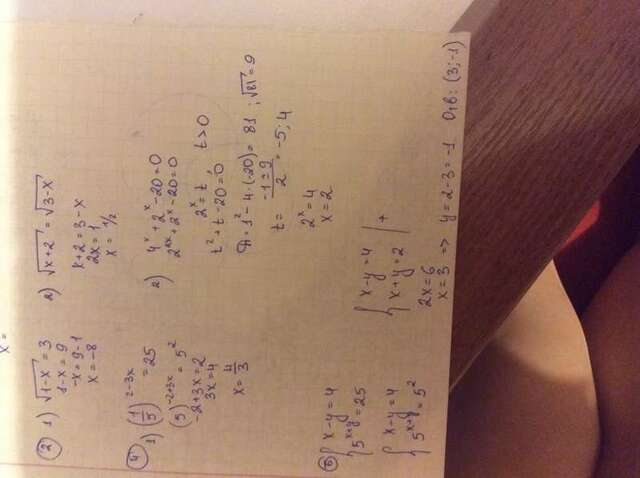 x =
2) 1) √(1-x) = 3
1-x = 9
-x = 9-1
x = -8
2) √(x+2) = √(3-x)
x+2 = 3-x
2x = 1
x = 1/2
4) 1) (1/5)^(2-3x) = 25
(5)^(-2+3x) = 5²
-2+3x = 2
3x = 4
x = 4/3
2) 4^x + 2^x - 20 = 0
2^(2x) + 2^x - 20 = 0
2^x = t, t>0
t² + t - 20 = 0
Д = 1² - 4·(-20) = 81 ; √81 = 9
t = (-1±9)/2 = -5; 4
2^x = 4
x = 2
5) { x-y = 4
5^(x+y) = 25
{ x-y = 4
5^(x+y) = 5²
{ x-y = 4
x+y = 2 | +
2x = 6
x = 3 => y = 2-3 = -1 Отв: (3; -1)